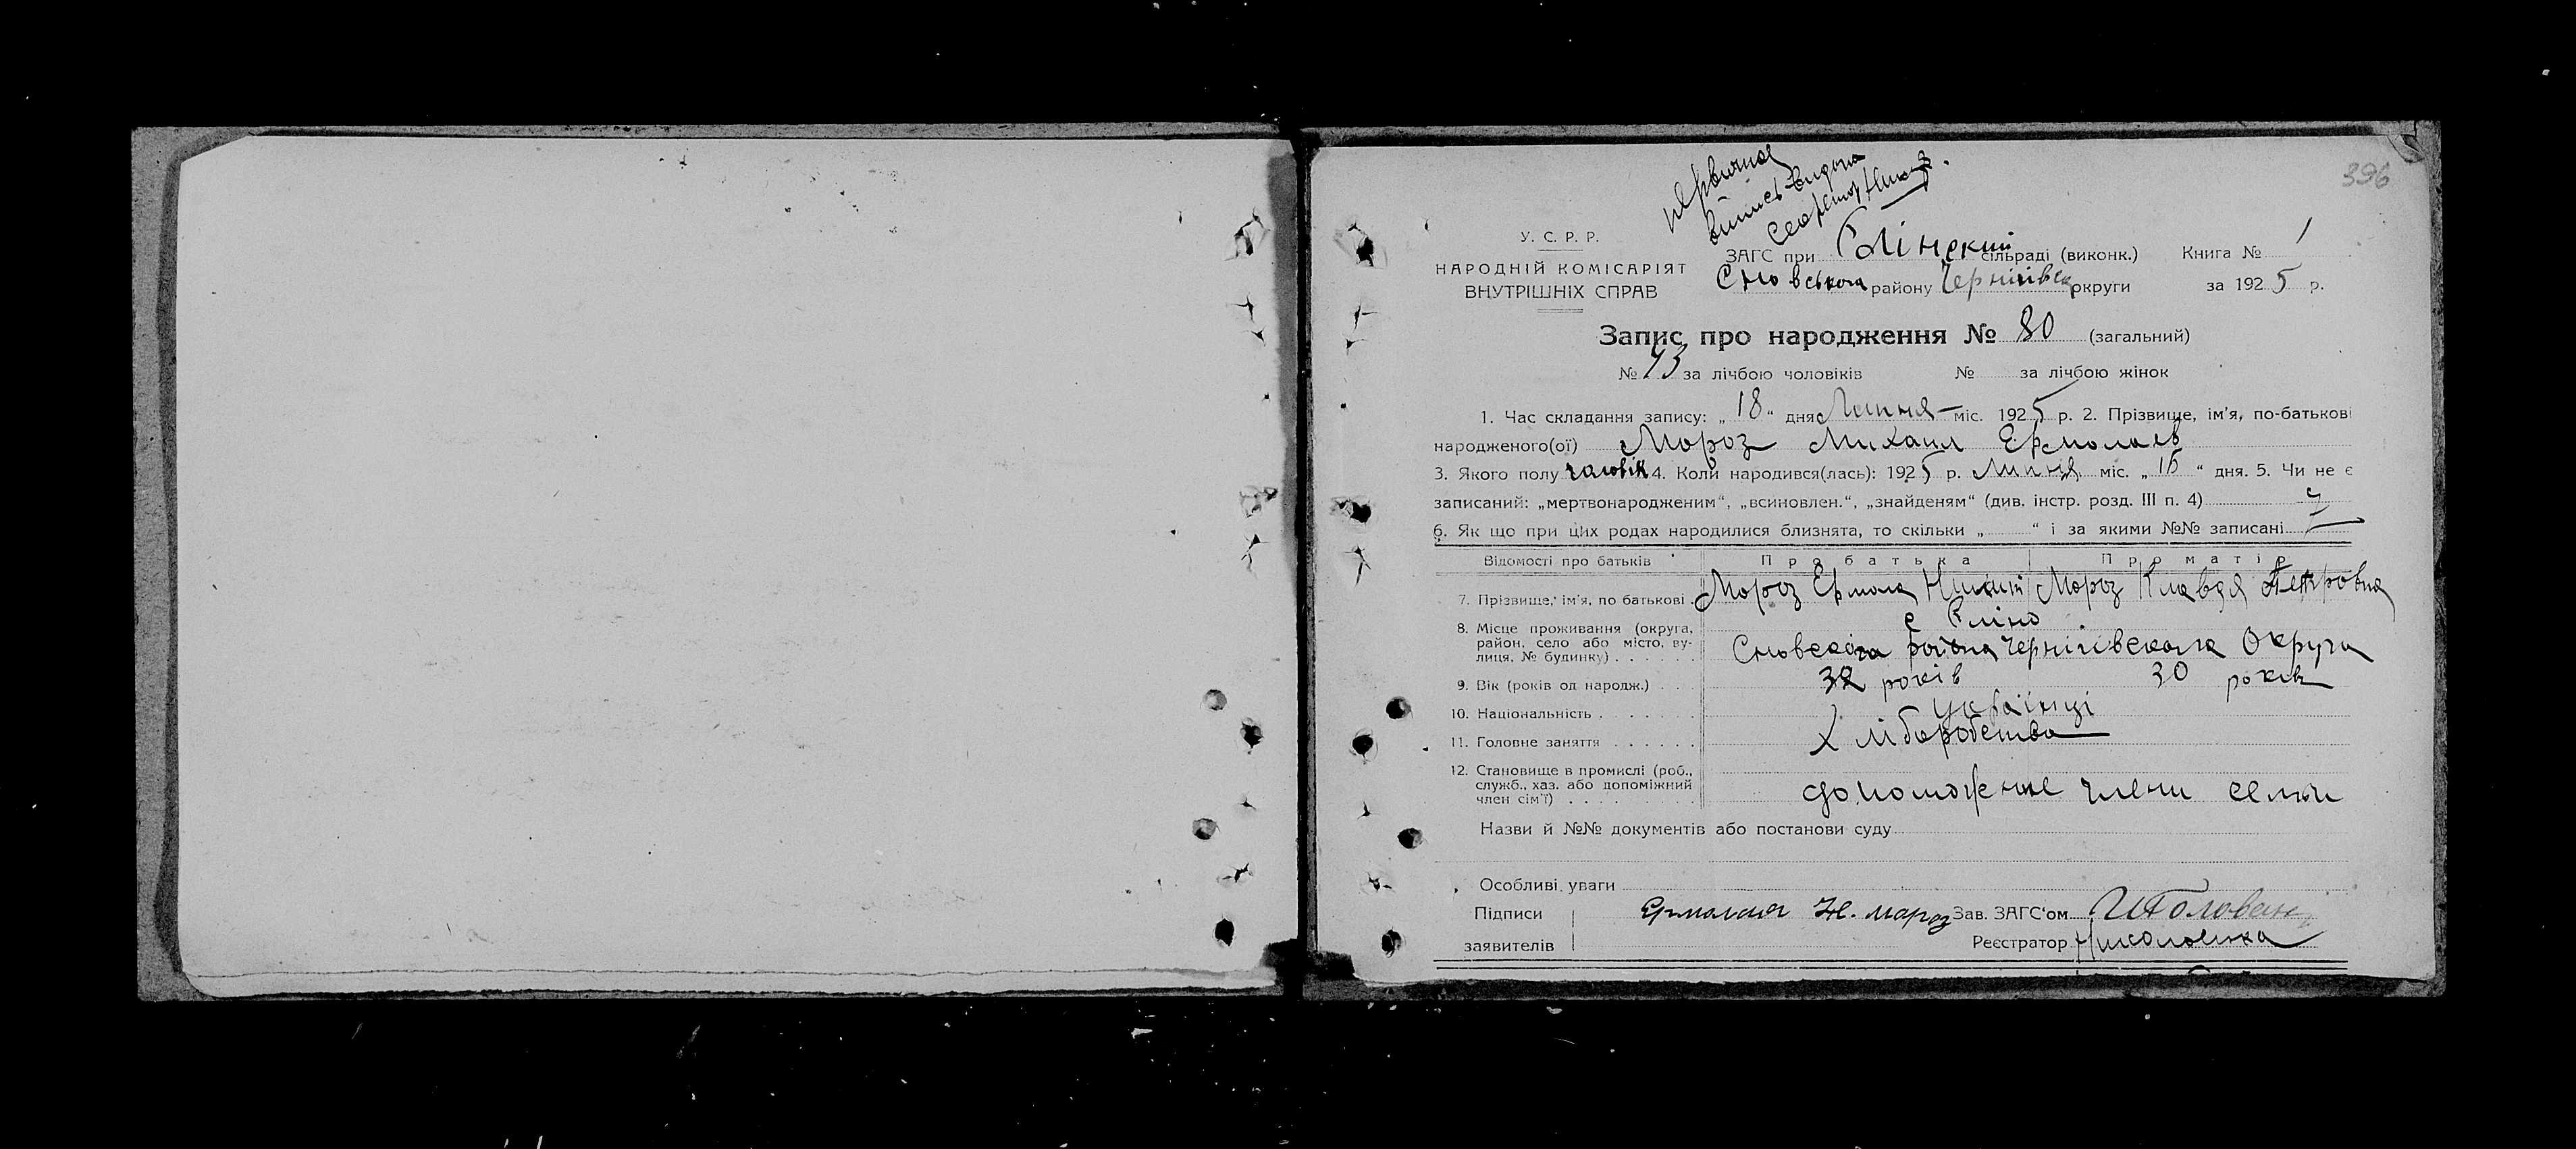 396
первичная
випись видана
У. С. Р. Р.
НАРОДНІЙ КОМІСАРІЯТ
ВНУТРІШНІХ СПРАВ
ЗАГС при сільраді (виконк.) Книга № 1
Сновського району Чернігівск округи за 1925 р.
Запис про народження № 80 (загальний)
№ 43 за лічбою чоловіків № за лічбою жінок
1. Час складання запису: „18“ дня Липня міс. 1925 р. 2. Прізвище, ім'я, по-батькові
народженого(ої) Мороз Михаил Ермолаев
3. Якого полу чаловік 4. Коли народився(лась): 1925 р. Липня міс. „ “ дня. 5. Чи не є
записаний: „мертвонародженим“, „всиновлен.“, „знайденям“ (див. інстр. розд. III п. 4)
6. Як що при цих родах народилися близнята, то скільки „ “ і за якими №№ записані
Відомості про батьків Про батька Про матір
7. Прізвище, ім'я, по батькові . Мороз Ермола Никит Мороз Клавдя Петровна
8. Місце проживання (округа,
район, село або місто, ву-
лиця, № будинку) . . . . . .
Сновского района Чернігівского Округа
9. Вік (років од народж.) . . . 32 років 30 років
10. Національність . . . . . . . українці
11. Головне заняття . . . . . . Хліборобства
12. Становище в промислі (роб.,
служб., хаз. або допоміжний
член сім'ї) . . . . . . . . .
члени семьи
Назви й №№ документів або постанови суду
Особливі уваги
Підписи Ермолай Н. мароз Зав. ЗАГС'ом
заявителів Реєстратор